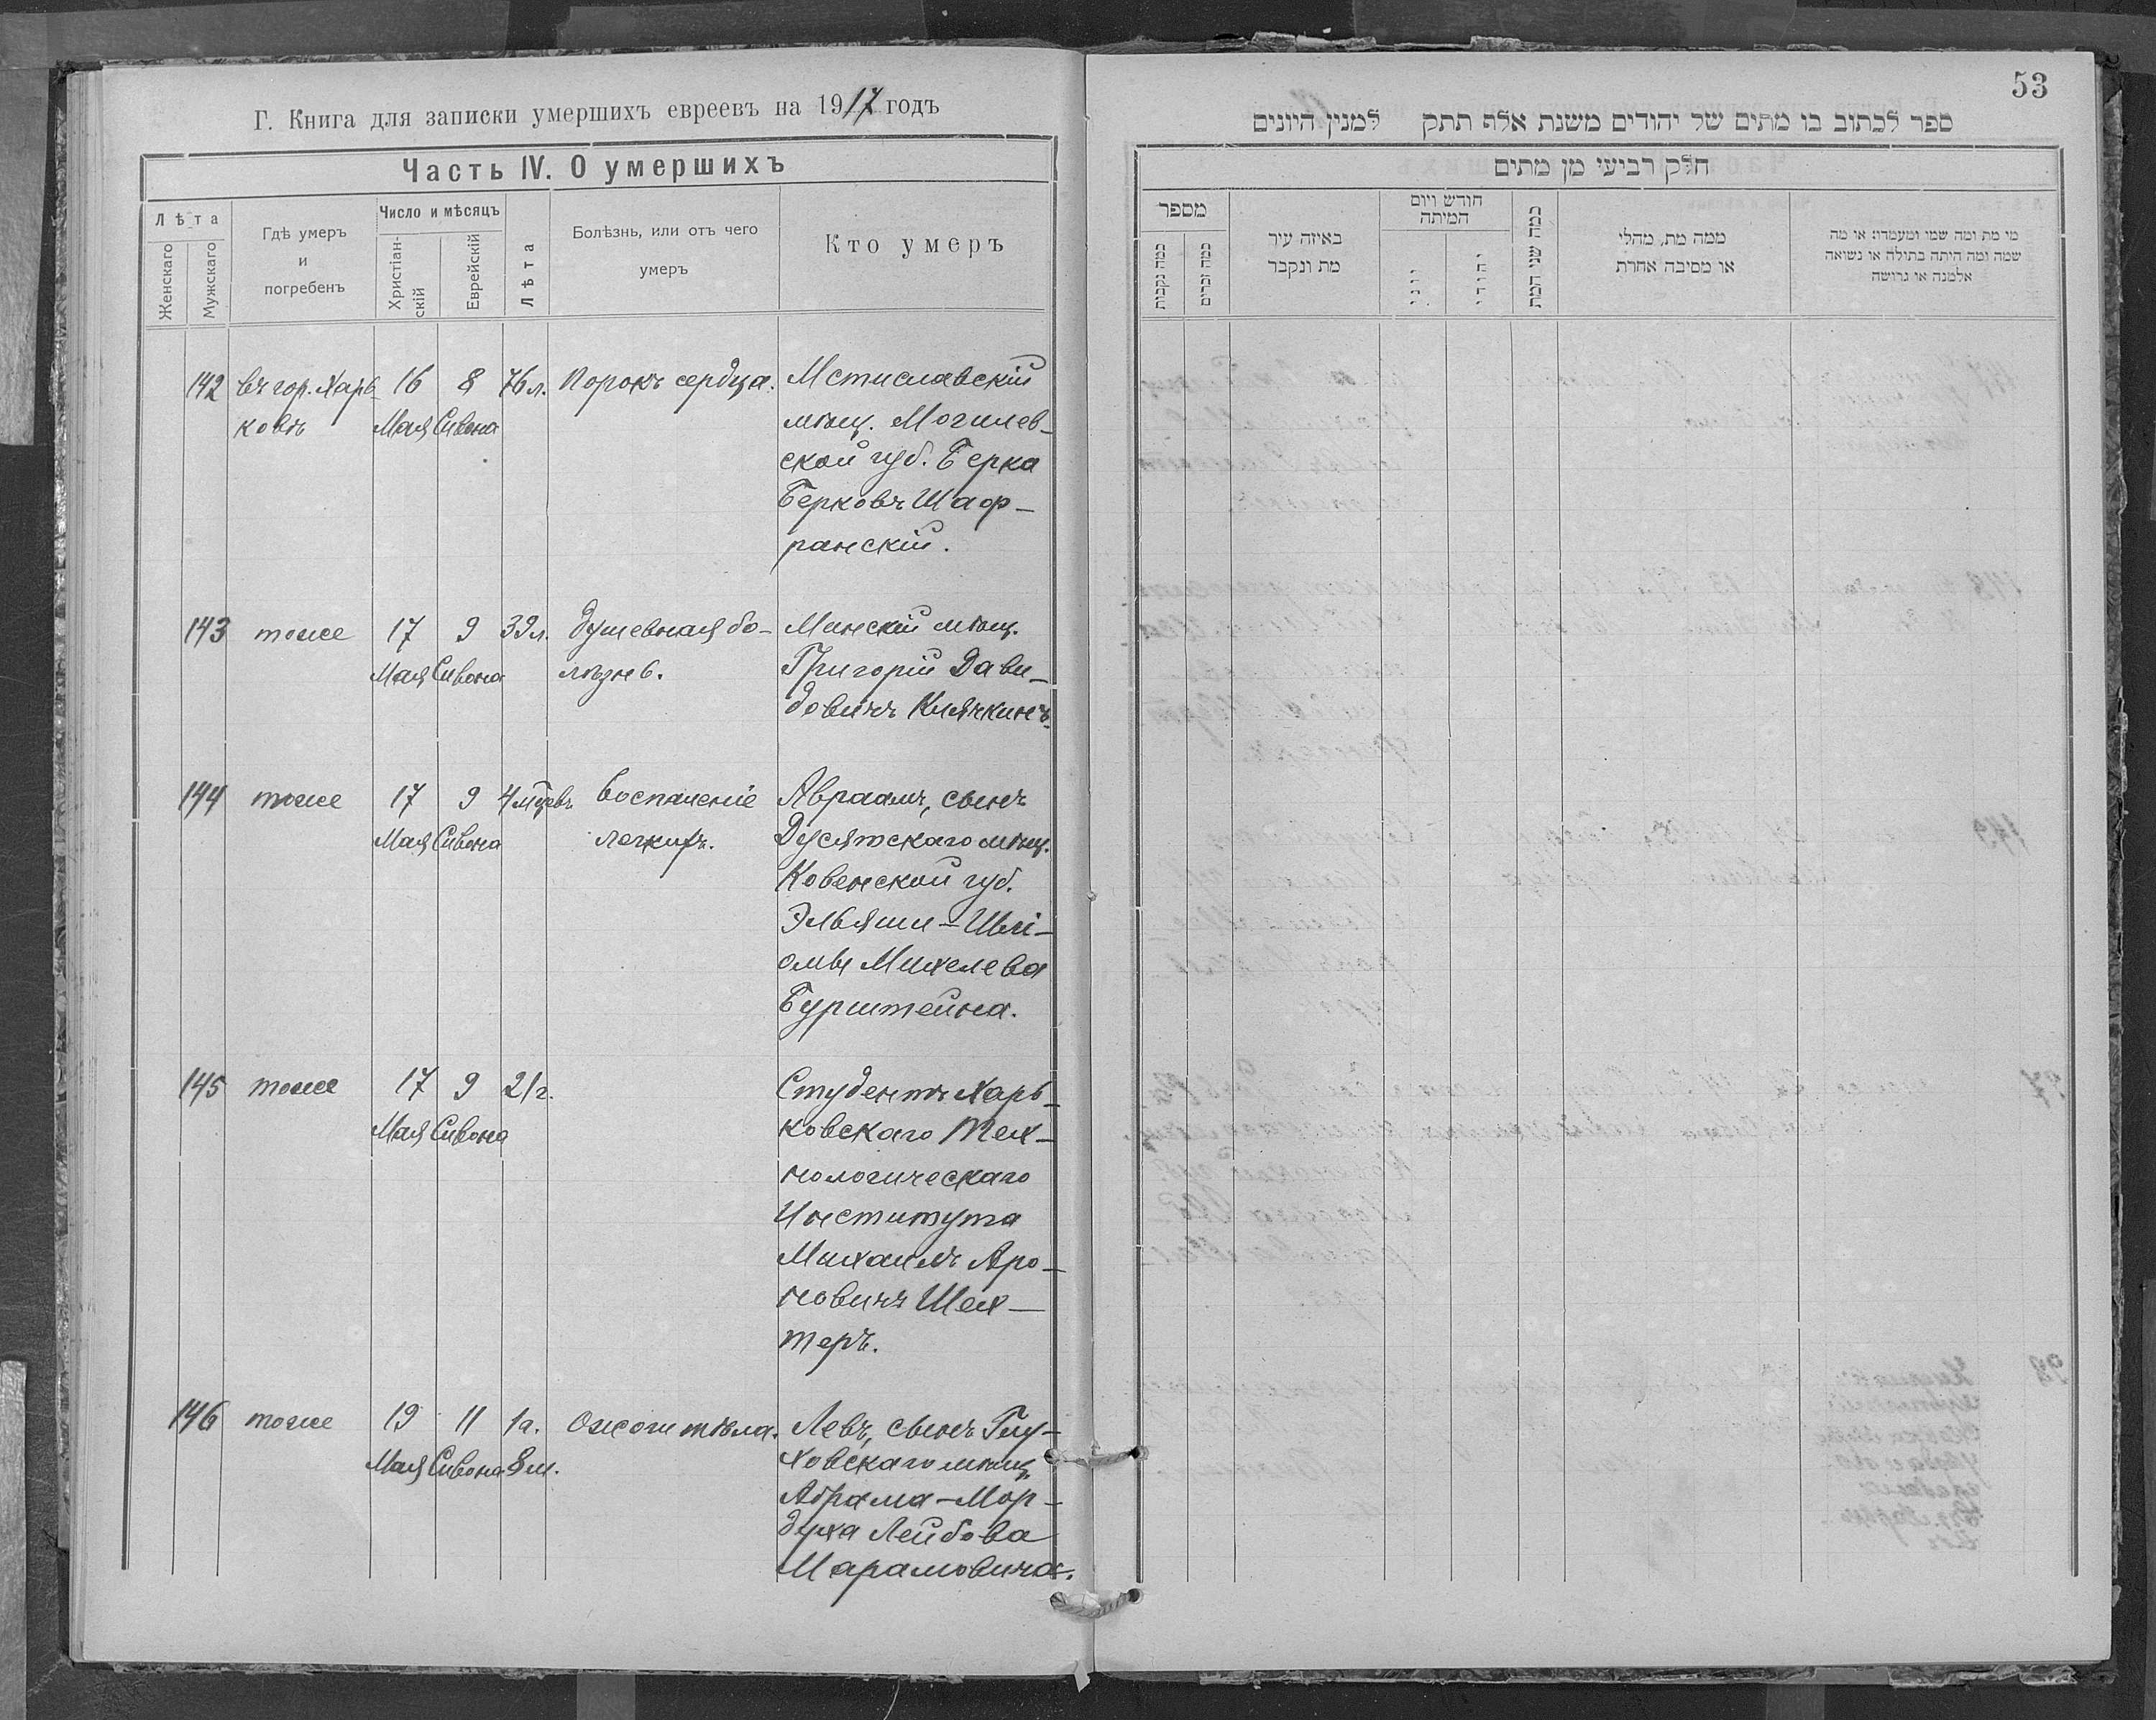 Г. Книга для записки умершихъ евреевъ на 1917 годъ
Часть IV. О умершихъ
Лѣта
Женскаго
Мужскаго
Гдѣ умеръ
и
погребенъ
Число и мѣсяцъ
Христіан-
скій
Еврейскій
Лѣта
Болѣзнь, или отъ чего
умеръ
Кто умеръ
142 въ гор. Харь- 16 8 76 л. Порокъ сердца. Мстиславскій
ковѣ Мая Сивона мѣщ. Могилев-
ской губ. Берка
Берковъ Шаф-
ранскій.
143 тоже 17 9 39 л. Душевная бо- Минскій мѣщ.
Мая Сивона лѣзнь. Григорій Дави-
довичъ Клячкинъ.
144 тоже 17 9 4 мѣсяцевъ Воспаленіе Авраамъ, сынъ
Мая Сивона легкихъ. Дусятскаго мѣщ.
Ковенской губ.
Эльяши-Шлі-
омы Михелева
Бурштейна.
145 тоже 17 9 21 г. Студентъ Харь-
Мая Сивона ковскаго Тех-
нологическаго
Института
Михаилъ Аро-
новичъ Шех-
теръ.
146 тоже 19 11 1 г. Ожоги тѣла. Левъ, сынъ Глу-
Мая Сивона 8 м. ховскаго мѣщ.
Абрама-Мор-
духа Лейбова
Марамовича.
53
ספר לכתוב בו מתים של יהודים משנת אלף תתק למנין היונים
חלק רביעי מן מתים
מספר
כמה נקבות
כמה זכרים
באיזה עיר
מת ונקבר
חודש ויום
המיתה
יוני
יהודי
כמה שני המת
ממה מת, מחלי
או מסיבה אחרת
מי מת ומה שמו ומעמדו: או מה
שמה ומה היתה בתולה או נשואה
אלמנה או גרושה